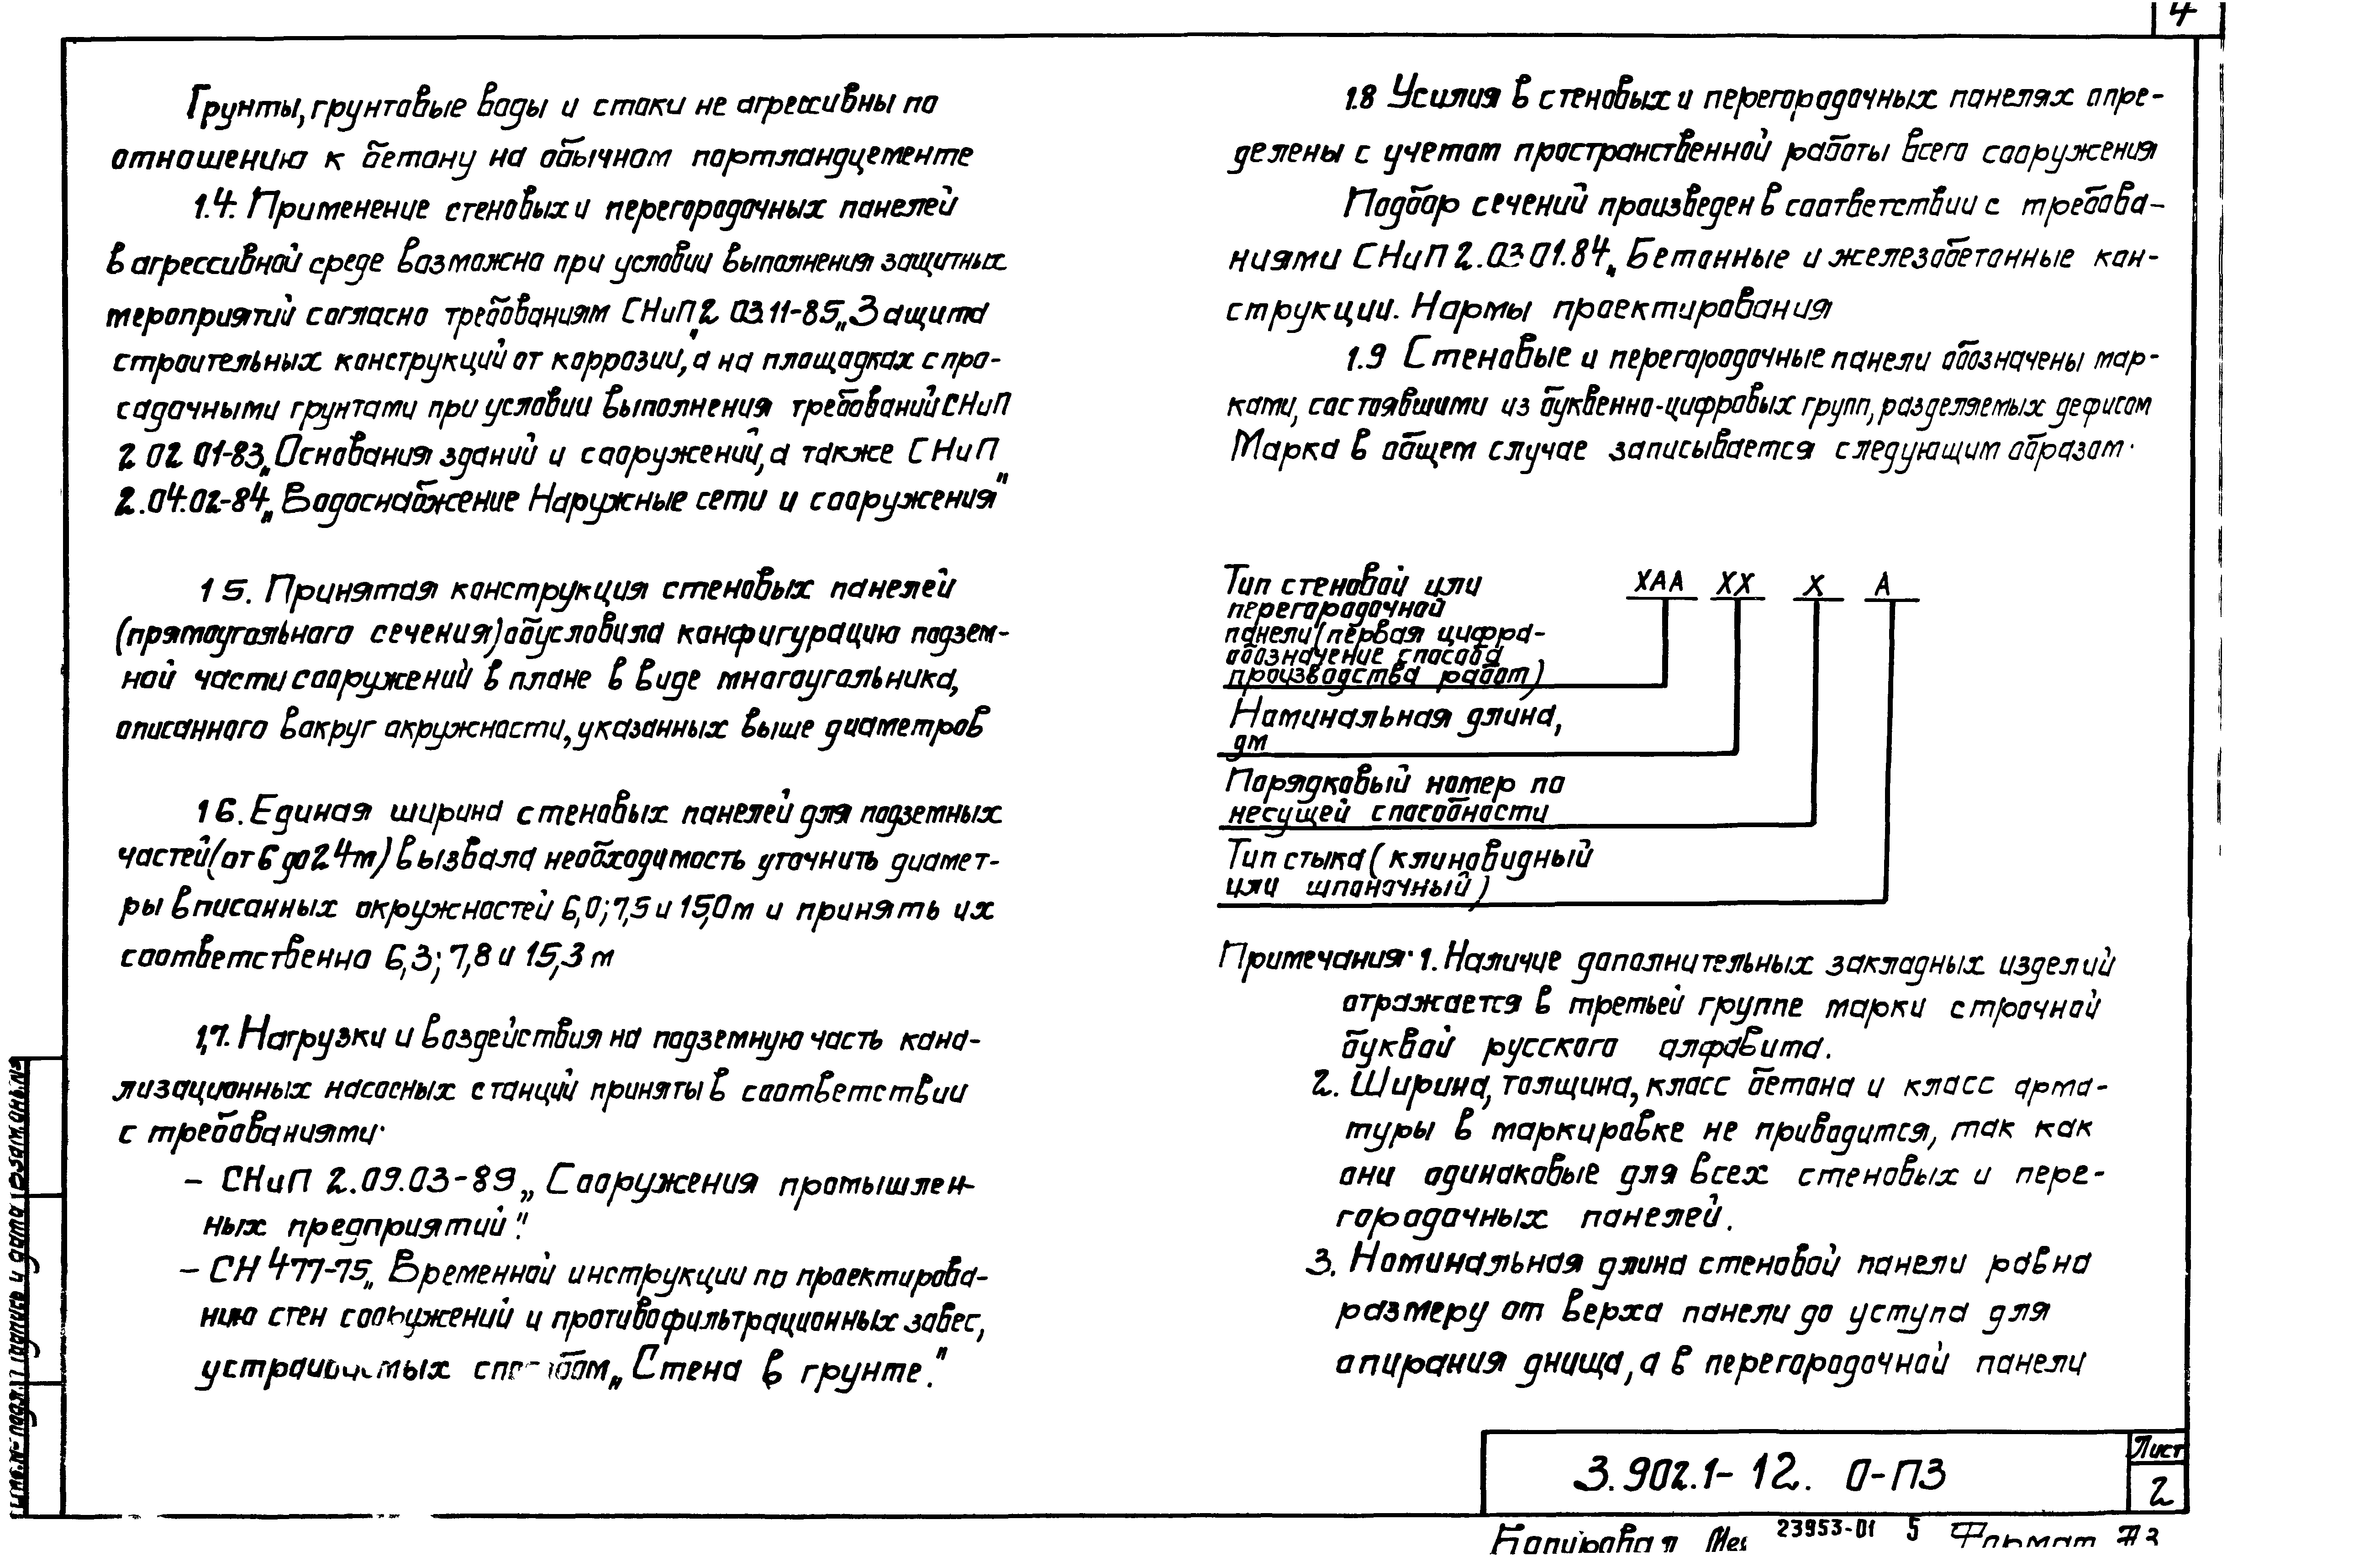 4
Грунты, грунтовые воды и стоки не агрессивны по
отношению к бетону на обычном портландцементе
1.4. Применение стеновых и перегородочных панелей
в агрессивной среде возможно при условии выполнения защитных
мероприятий согласно требованиям СНиП 2 03.11-85 „Защита
строительных конструкций от коррозии", а на площадках с про-
садочными грунтами при условии выполнения требований СНиП
2 02 01-83 „Основания зданий и сооружений, а также СНиП
2.04.02-84 „Водоснабжение Наружные сети и сооружения"
1 5. Принятая конструкция стеновых панелей
(прямоугольного сечения) обусловила конфигурацию подзем-
ной части сооружений в плане в виде многоугольника,
описанного вокруг окружности, указанных выше диаметров
1 6. Единая ширина стеновых панелей для подземных
частей (от 6 до 24м) вызвала необходимость уточнить диамет-
ры вписанных окружностей 6,0; 7,5 и 15,0м и принять их
соответственно 6,3; 7,8 и 15,3 м
1,7. Нагрузки и воздействия на подземную часть кана-
лизационных насосных станций приняты в соответствии
с требованиями·
– СНиП 2.09.03-89 „Сооружения промышлен-
ных предприятий".
– СН 477-75 „Временной инструкции по проектирова-
нию стен сооружений и противофильтрационных завес,
устраиваемых способом „Стена в грунте."
1.8 Усилия в стеновых и перегородочных панелях опре-
делены с учетом пространственной работы всего сооружения
Подбор сечений произведен в соответствии с требова-
ниями СНиП 2.03 01.84 „Бетонные и железобетонные кон-
струкции. Нормы проектирования
1.9 Стеновые и перегородочные панели обозначены мар-
ками, состоявшими из буквенно-цифровых групп, разделяемых дефисом
Марка в общем случае записывается следующим образом·
ХАА ХХ Х А
Тип стеновой или
перегородочной
панели (первая цифра-
обозначение способа
производства работ)
Номинальная длина,
дм
Порядковый номер по
несущей способности
Тип стыка (клиновидный
или шпоночный)
Примечания· 1. Наличие дополнительных закладных изделий
отражается в третьей группе марки строчной
буквой русского алфавита.
2. Ширина, толщина, класс бетона и класс арма-
туры в маркировке не приводится, так как
они одинаковые для всех стеновых и пере-
городочных панелей.
3. Номинальная длина стеновой панели равна
размеру от верха панели до уступа для
опирания днища, а в перегородочной панели
3.902.1-12. 0-ПЗ
Лист
2
Копировал
23953-01 5 Формат А3
Инв.№ подл. Подпись и дата Взам.инв.№